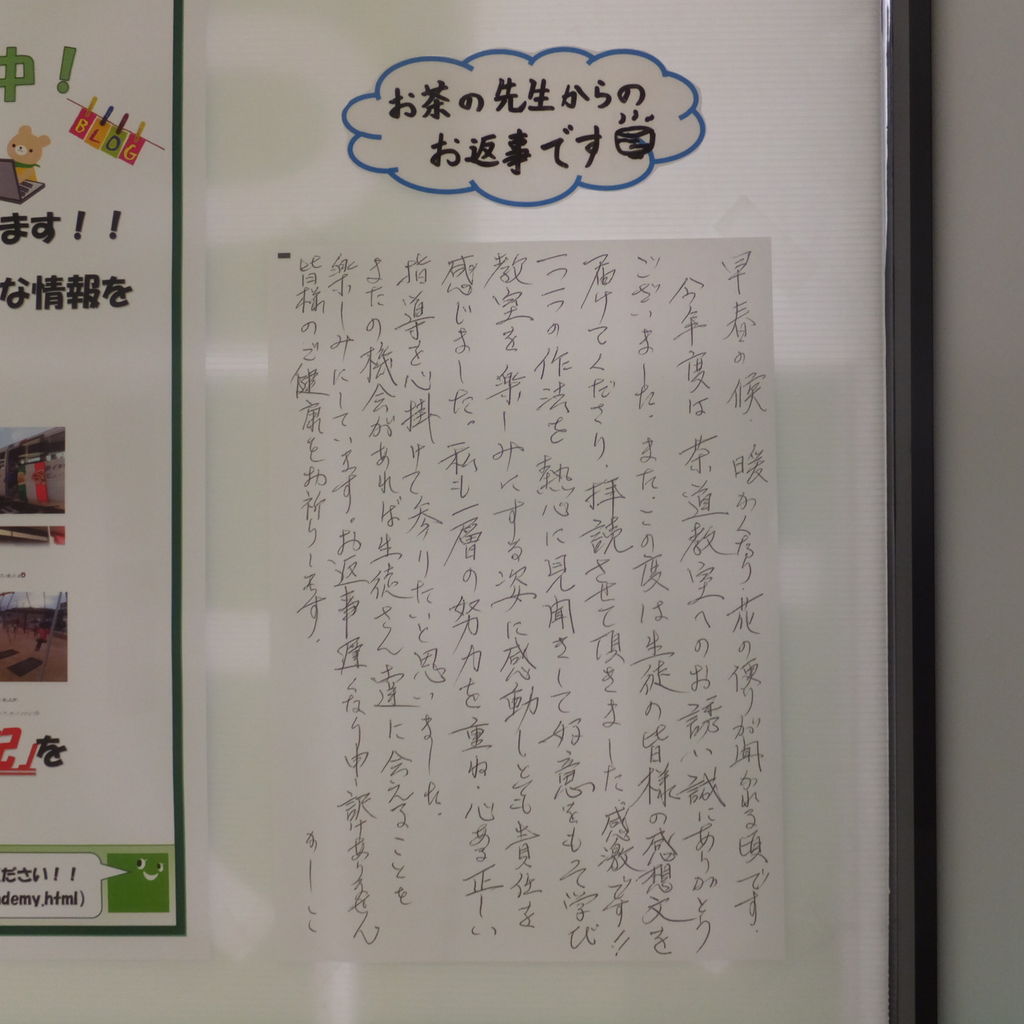 中!
BLOG
ます!!
な情報を
記」を
ださい!!
demy.html)
お茶の先生からの
お返事です
早春の候、暖かくなり、花の便りが聞かれる頃です。
今年度は茶道教室へのお誘い誠にありがとう
ございました。また、この度は生徒の皆様の感想文を
届けてくださり、拝読させて頂きました。感激です!!
一つ一つの作法を熱心に見聞きして好意をもって学び
教室を楽しみにする姿に感動しとても責任を
感じました。私も一層の努力を重ね、心ある正しい
指導を心掛けて参りたいと思いました。
またの機会があれば生徒さん達に会えることを
楽しみにしています。お返事遅くなり申し訳ありません
皆様のご健康をお祈りします。
かしこ